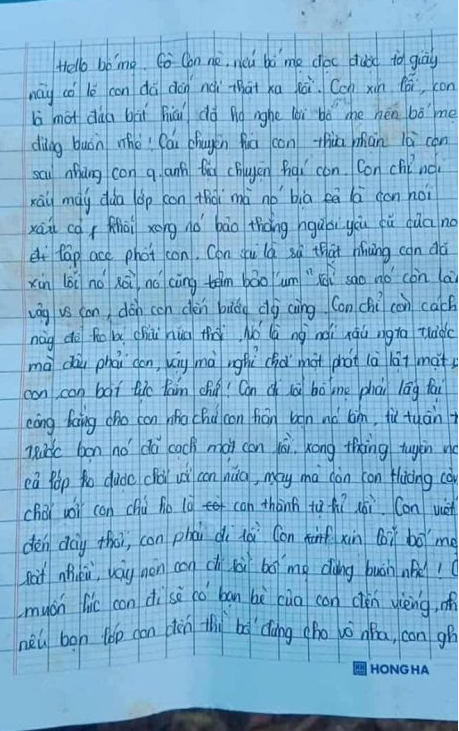 Hello bố mẹ. Cô Con nè, nếu bố mẹ đọc được tờ giấy
này có lẽ con đã đến nơi thật xa rồi. Con xin lỗi, con
là một đứa bất hiếu, đã ko nghe lời bố mẹ nên bố mẹ
đừng buồn nhé! Cái chuyện kia con thừa nhận là con
sai nhưng con q.anh bịa chuyện hại con. Con chỉ nói
xấu mấy đứa lớp con thôi mà nó bịa là con nói
xấu cả khối xong nó bảo thằng người yêu cũ của nó
lập acc phốt con. Con là sự thật nhưng con đã
xin lỗi nó rồi, nó cũng bảo "um" rồi sao nó còn
vậy vs con, dồn con đến bước đg cùng. Con chỉ còn cách
này để ko bị chửi nữa thôi. Nó là ng nói xấu ngta trước
mà đâu phải con, vậy mà nghỉ chơi một phát là lật mặt
con, con bất lực lắm chứ! Con đi rồi bố mẹ phải lấy lại
công bằng cho con nhá chứ con hận bọn nó lắm, từ tuần
trước bọn nó đã cạch mặt con rồi, xong thằng tuyên
cả lớp ko được chơi với con nữa, may mà còn con Hương
chơi với con chứ ko là con thành tự kỉ rồi. Con viết
đến đây thôi, con phải đi rồi. Con xin lỗi bố mẹ
rất nhiều, vậy nên con đi rồi bố mẹ đừng buồn nhé!
muốn lúc con đi sẽ có bạn bè của con đến viếng,
nếu bạn lớp con đến thì bố đừng cho vô nha, con
HONG HA